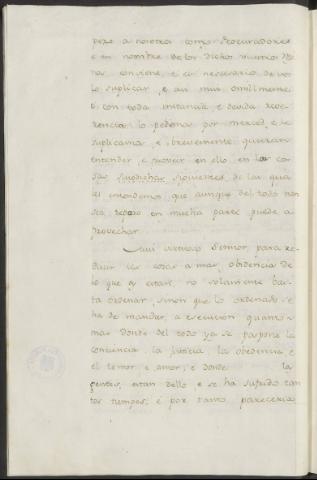 pero a nosotros como Procuradores
e en nombre de los dichos nuestros
nos conviene, e es nescesario de vos
lo suplicar, e asi mui omilmente
e con toda instancia e devida reve
rencia lo pedimos por merced, e se
suplicamos e, brevemente quieran
entender, e proveer en ello, en las co
sas susodichas siguientes, de las qua
les entendemos que aunque del todo non
sea reparo en mucha parte puede a
provechar.
Mui virtuoso Sennor, para re
ducir las cosas a mas obidencia de
lo que oy estan, no solamente bas
ta ordenar, sinon que lo ordenado se
ha de mandar a execucion quanto
mas donde del todo ya se pospone la
conciencia la justicia la obediencia e
el temor e amor; e donde las
gentes, estan dello e se ha sufrido tan
tos tiempos; é por tanto, pareceria